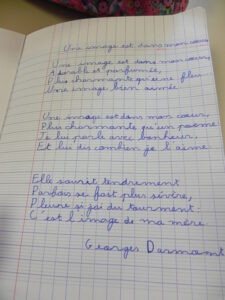 Une image est dans mon cœur
Une image est dans mon cœur,
Adorable et parfumée,
Plus charmante qu'une fleur
Une image bien aimée
Une image est dans mon cœur,
Plus charmante qu'un poème
Je lui parle avec bonheur
Et lui dis combien je l'aime
Elle sourit tendrement
Parfois se fait plus sévère,
Pleure si j'ai du tourment
C'est l'image de ma mère
Georges